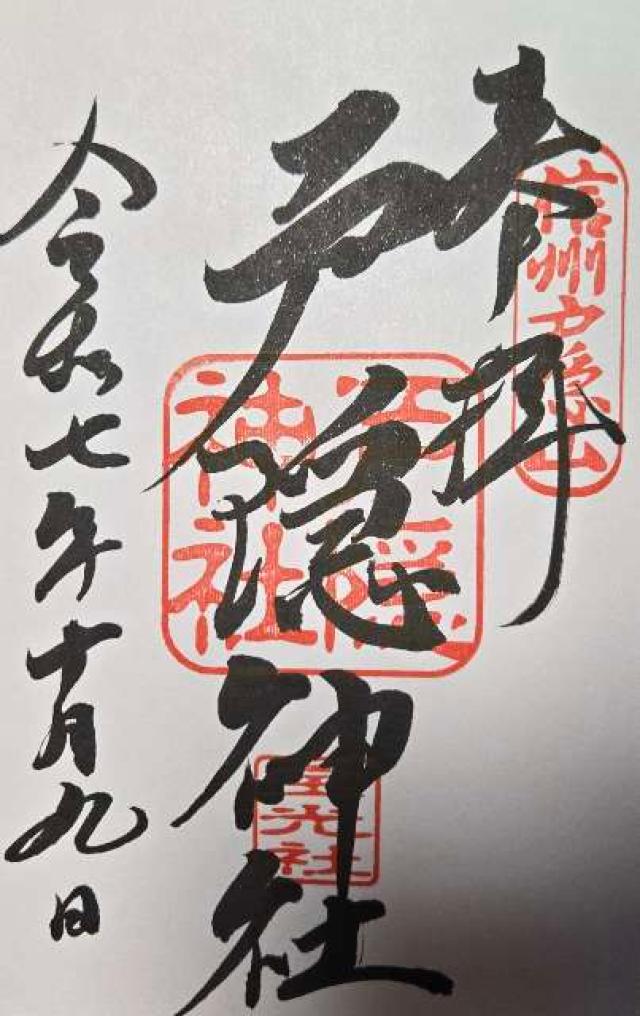 奉拝
信州戸隠山
戸隠神社
戸隠神社
宝光社
令和七年十月九日